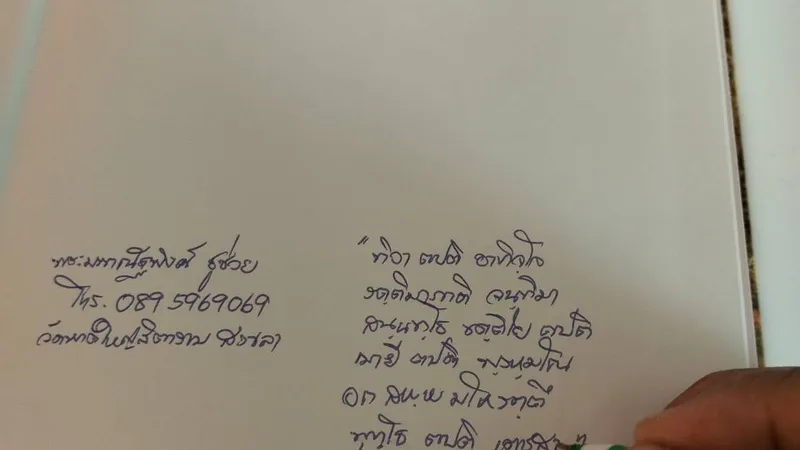 พระมหาณัฐพงศ์ ชูช่วย
โทร. 089 5969069
วัดหาดใหญ่สิตาราม สงขลา
"ทิวา ตปติ อาทิจฺโจ
รตฺติมาภาติ จนฺทิมา
สนฺนทฺโธ ขตฺติโย ตปติ
ฌายี ตปติ พฺราหฺมโณ
อถ สพฺพ มโหรตฺตึ
พุทฺโธ ตปติ เตชสา"